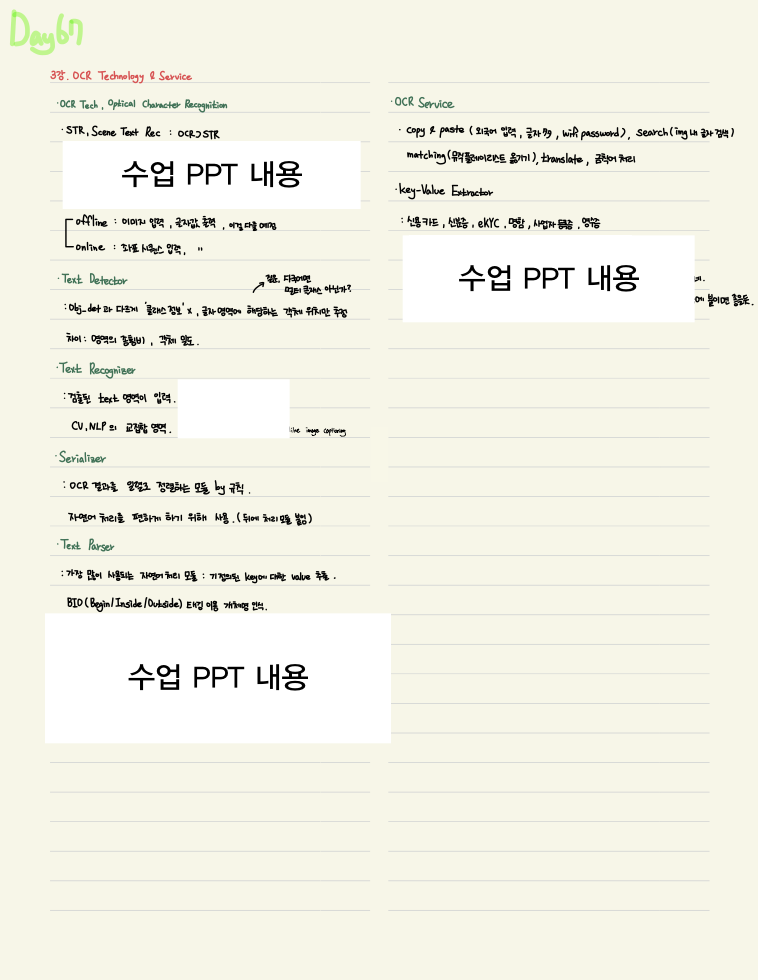 Day67
3강. OCR Technology & Service
·OCR Tech, Optical Character Recognition
·STR, Scene Text Rec : OCR⊃STR
수업 PPT 내용
offline : 이미지 입력, 글자값 출력, 이걸 다룰 예정
online : 좌표 시퀀스 입력, "
·Text Detector
질문. 다국어면
멀티 클래스 아닌가?
: Obj_det과 다르게 '클래스 정보' x, 글자 영역에 해당하는 객체 위치만 추정
차이 : 영역의 종횡비, 객체 밀도.
·Text Recognizer
: 검출된 text 영역이 입력.
CV, NLP의 교집합 영역.
like image captioning
·Serializer
: OCR 결과를 일렬로 정렬하는 모듈 by 규칙.
자연어 처리를 편하게 하기 위해 사용. (뒤에 처리 모듈 붙임)
·Text Parser
: 가장 많이 사용되는 자연어 처리 모듈 : 기정의된 key에 대한 value 추출.
BIO (Begin/Inside/Outside) 태깅 이용 개체명 인식.
수업 PPT 내용
·OCR Service
· copy & paste (외국어 입력, 글자, wifi password), search (img 내 글자 검색)
matching (뮤직플레이리스트 옮기기), translate, 금칙어 처리
·key-Value Extractor
: 신용카드, 신분증, eKYC, 명함, 사업자 등록증, 영수증
수업 PPT 내용
에 붙이면 좋을듯.